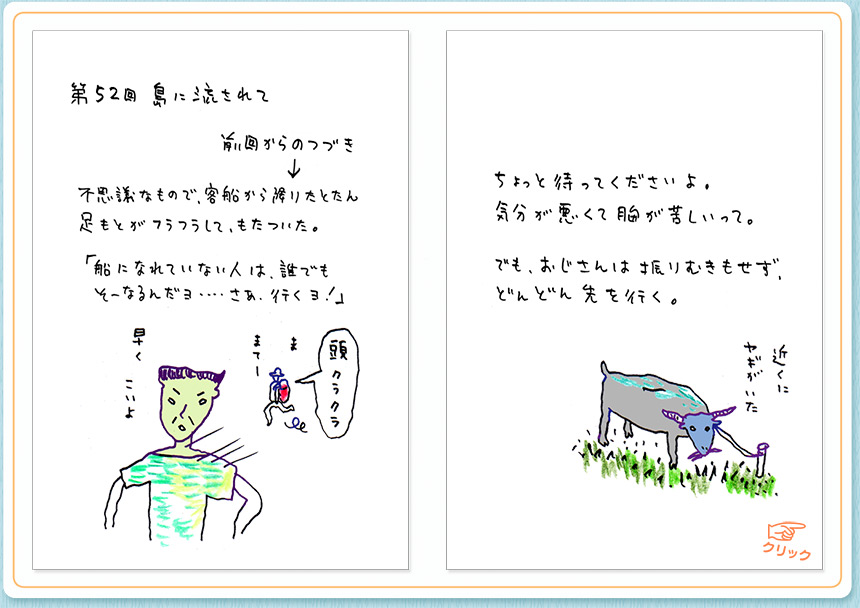 第52回 島に流されて
前回からのつづき
↓
不思議なもので、客船から降りたとたん
足もとがフラフラして、もたついた。
「船になれていない人は、誰でも
そーなるんだヨ‥‥さあ、行くヨ!」
早く
こいよ
ま
まてー
頭
クラクラ
ちょっと待ってくださいよ。
気分が悪くて胸が苦しいって。
でも、おじさんは振りむきもせず、
どんどん先を行く。
近くに
ヤギがいた
クリック